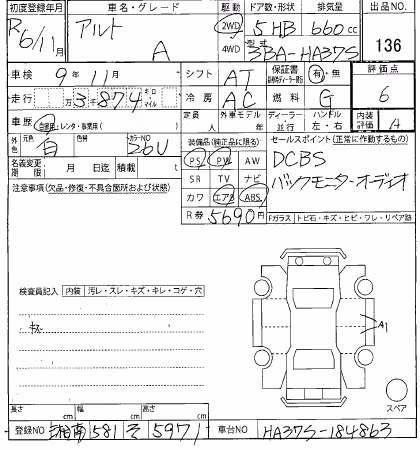 初度登録年月 車名・グレード 駆動 ドア数・形状 排気量 出品NO.
R6/11月 アルト A 2WD 4WD 5 HB 660cc 136
型式 3BA-HA37S
車検 9年11月 シフト AT 保証書 有・無 評価点
走行 万3千874 キロ マイル 冷房 AC 燃料 G 6
車歴 自家用・レンタ・事業用( ) 定員 人 外車モデル 年 ディーラー 並行 ハンドル 左・右 内装評価 A
外色 元色 白 色替 カラーNO 26U 装備品(純正品に限る) セールスポイント(正常に作動するもの)
PS PW AW DCBS
名義変更期限 月 日迄 積載 t SR TV ナビ バックモニターオーディオ
注意事項(欠品・修復・不具合箇所および状態) カワ エアB ABS
R券 5690円 Fガラス トビ石・キズ・ヒビ・ワレ・リペア跡
検査員記入 内装 汚レ・スレ・キズ・キレ・コゲ・穴
キズ
A1
スペア
長さ cm 幅 cm 高さ cm
登録NO 湘南 581 そ 5971 車台NO HA37S-184863